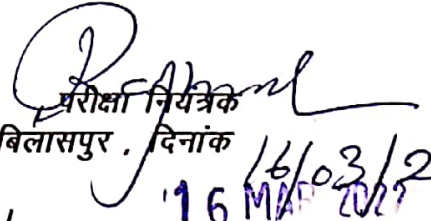 परीक्षा नियंत्रक
बिलासपुर , दिनांक 16/03/2
'16 MAR